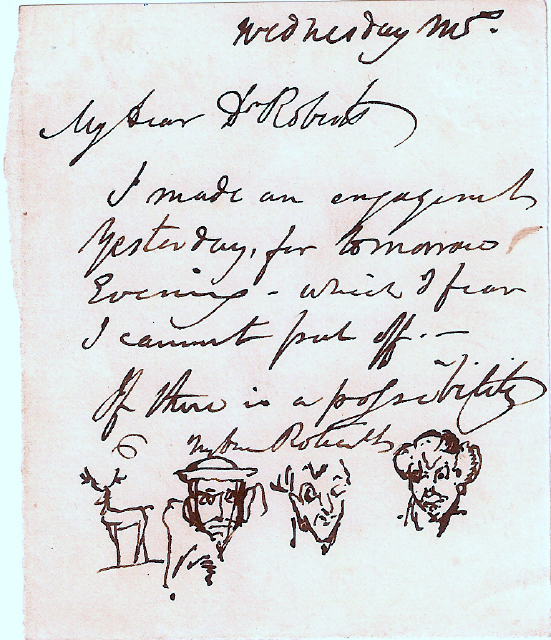 Wednesday Mg.
My dear Dr Roberts
I made an engagement
Yesterday, for tomorrow
Evening - which I fear
I cannot put off. -
If there is a possibility
My dear Roberts